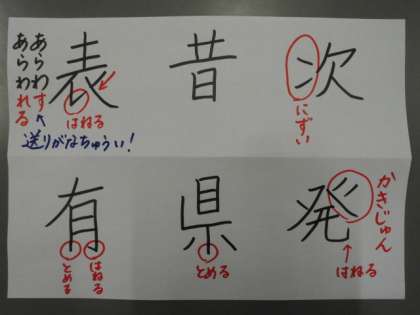 次
にすい
昔
表
はねる
あらわす
あらわれる
送りがなちゅうい!
発
かきじゅん
はねる
県
とめる
有
はねる
とめる